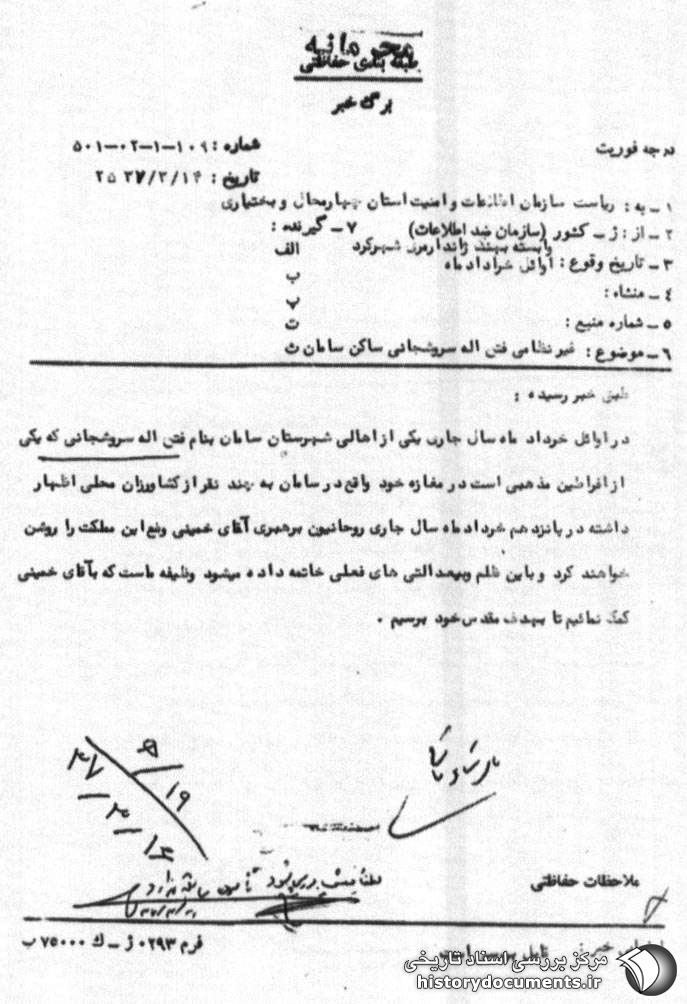 محرمانه
طبقه بندی حفاظتی
برگ خبر
درجه فوریت
شماره : ۱۰۹-۱-۰۲-۵۰۱
تاریخ : ۲۵۳۷/۳/۱۴
۱ـ به : ریاست سازمان اطلاعات و امنیت استان چهارمحال و بختیاری
۲ـ از : ژ ـ کشور (سازمان ضد اطلاعات) ۷ـ گیرنده :
وابسته بهند ژاندارمری شهرکرد الف
۳ـ تاریخ وقوع : اوائل خردادماه
ب
۴ـ منشاء :
پ
۵ـ شماره منبع :
ت
۶ـ موضوع : غیرنظامی فتح اله سروشجانی ساکن سامان ث
طبق خبر رسیده :
در اوائل خرداد ماه سال جاری یکی از اهالی شهرستان سامان بنام فتح اله سروشجانی که یکی
از افراطین مذهبی است در مغازه خود واقع در سامان به چند نفر از کشاورزان محلی اظهار
داشته در پانزدهم خرداد ماه سال جاری روحانیون برهبری آقای خمینی وضع این مملکت را روشن
خواهند کرد و باین ظلم وبیعدالتی های فعلی خاتمه داده میشود وظیفه ماست که بآقای خمینی
کمک نمائیم تا بهدف مقدس خود برسیم .
۵
۱۹
۳۷
۳
۱۶
ملاحظات حفاظتی
فرم ۰۲۹۳ ژ ـ ک ۷۵۰۰۰ ب
مرکز بررسی اسناد تاریخی
historydocuments.ir